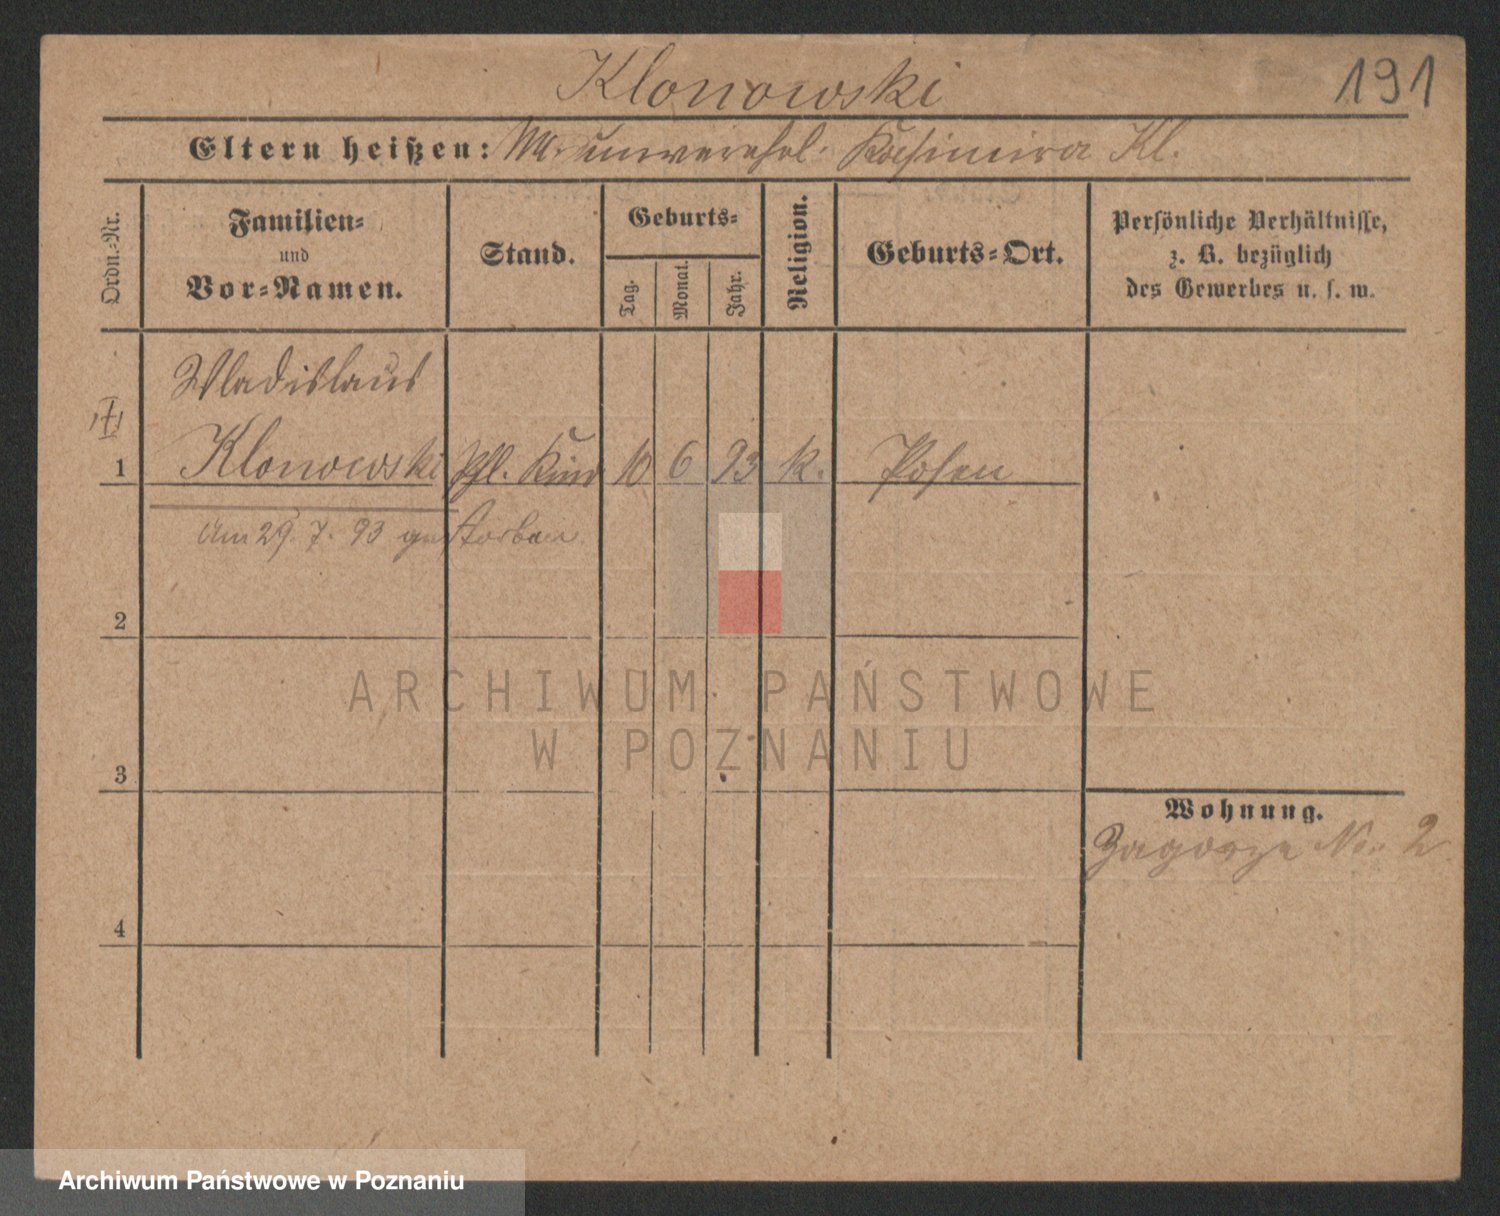 Klonowski
191
Eltern heißen: M. unverehel. Kasimira Kl.
Ordn.-Nr.
Familien-
und
Vor-Namen.
Stand.
Geburts-
Tag.
Monat.
Jahr.
Religion.
Geburts-Ort.
Persönliche Verhältnisse,
z. B. bezüglich
des Gewerbes u. s. w.
Wladislaus
1 Klonowski Pfl. Kind 10 6 93 k. Posen
Am 29. 7. 93 gestorben.
2
3
4
Wohnung.
Zagorze No. 2
ARCHIWUM PAŃSTWOWE
W POZNANIU
Archiwum Państwowe w Poznaniu